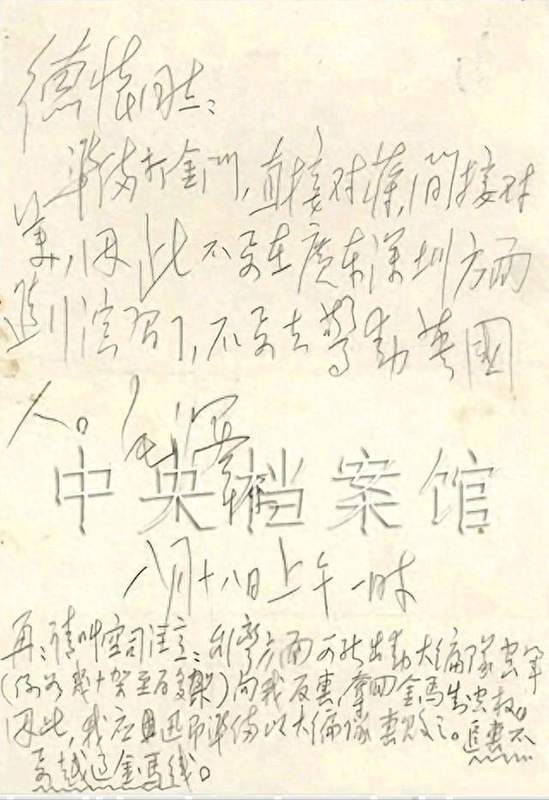 德怀同志：
準備打金门，直接对蒋，间接对
美，因此不要在廣东深圳方面
進行演習了，不要去驚动英國
人。毛泽东
中央档案馆
八月十八日上午一时
再：请叫空司注意：台湾方面可能出动大编隊空軍
(例如幾十架至百多架)向我反击，夺回金马制空权。
因此，我应迅即準備以大编隊击败之。追击不
要越过金马线。